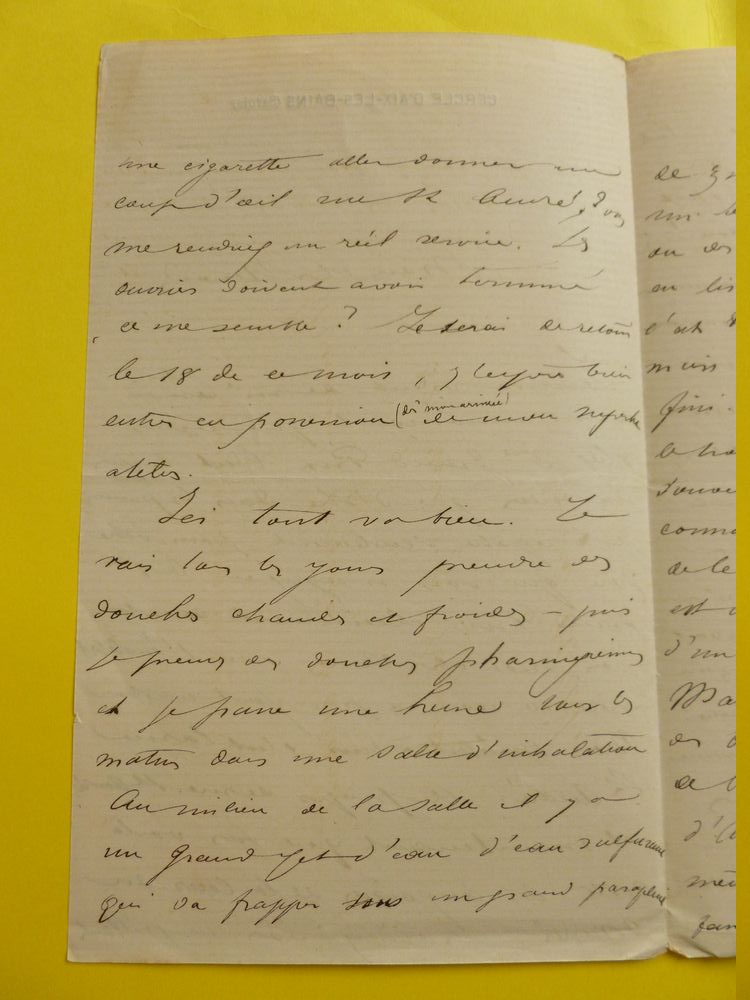 CERCLE D'AIX-LES-BAINS
une cigarette aller donner un
coup d'œil rue St André, vous
me rendriez un réel service. Les
ouvriers doivent avoir terminé
ce me semble ? Je serai de retour
le 18 de ce mois, j'espère bien
entrer en possession (dès mon arrivée) de mon
atelier.
Ici tout va bien. Je
vais tous les jours prendre des
douches chaudes et froides – puis
je prens des douches pharingiennes
et je passe une heure tous les
matins dans une salle d'inhalation
Au milieu de la salle il y a
un grand jet d'eau d'eau sulfureuse
qui va frapper sous un grand parapluie
de
un
ou des
en
c'est
mais
fini
connu
de le
est
d'un
Ma
de